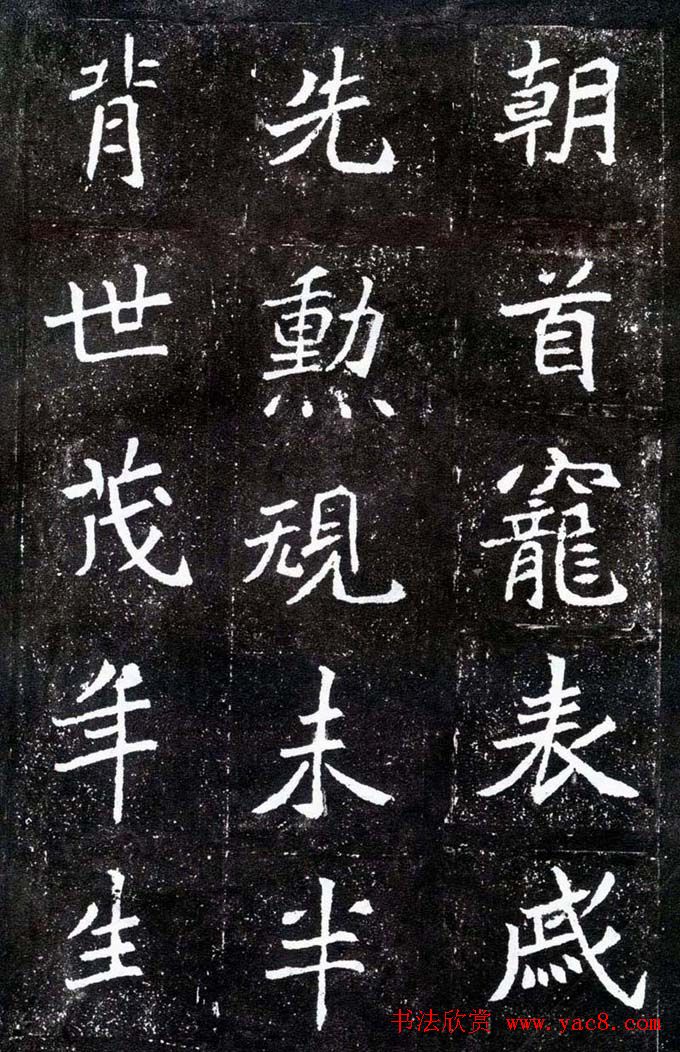 朝首寵表戚
先勳規未半
背世茂年生
书法欣赏 www.yac8.com